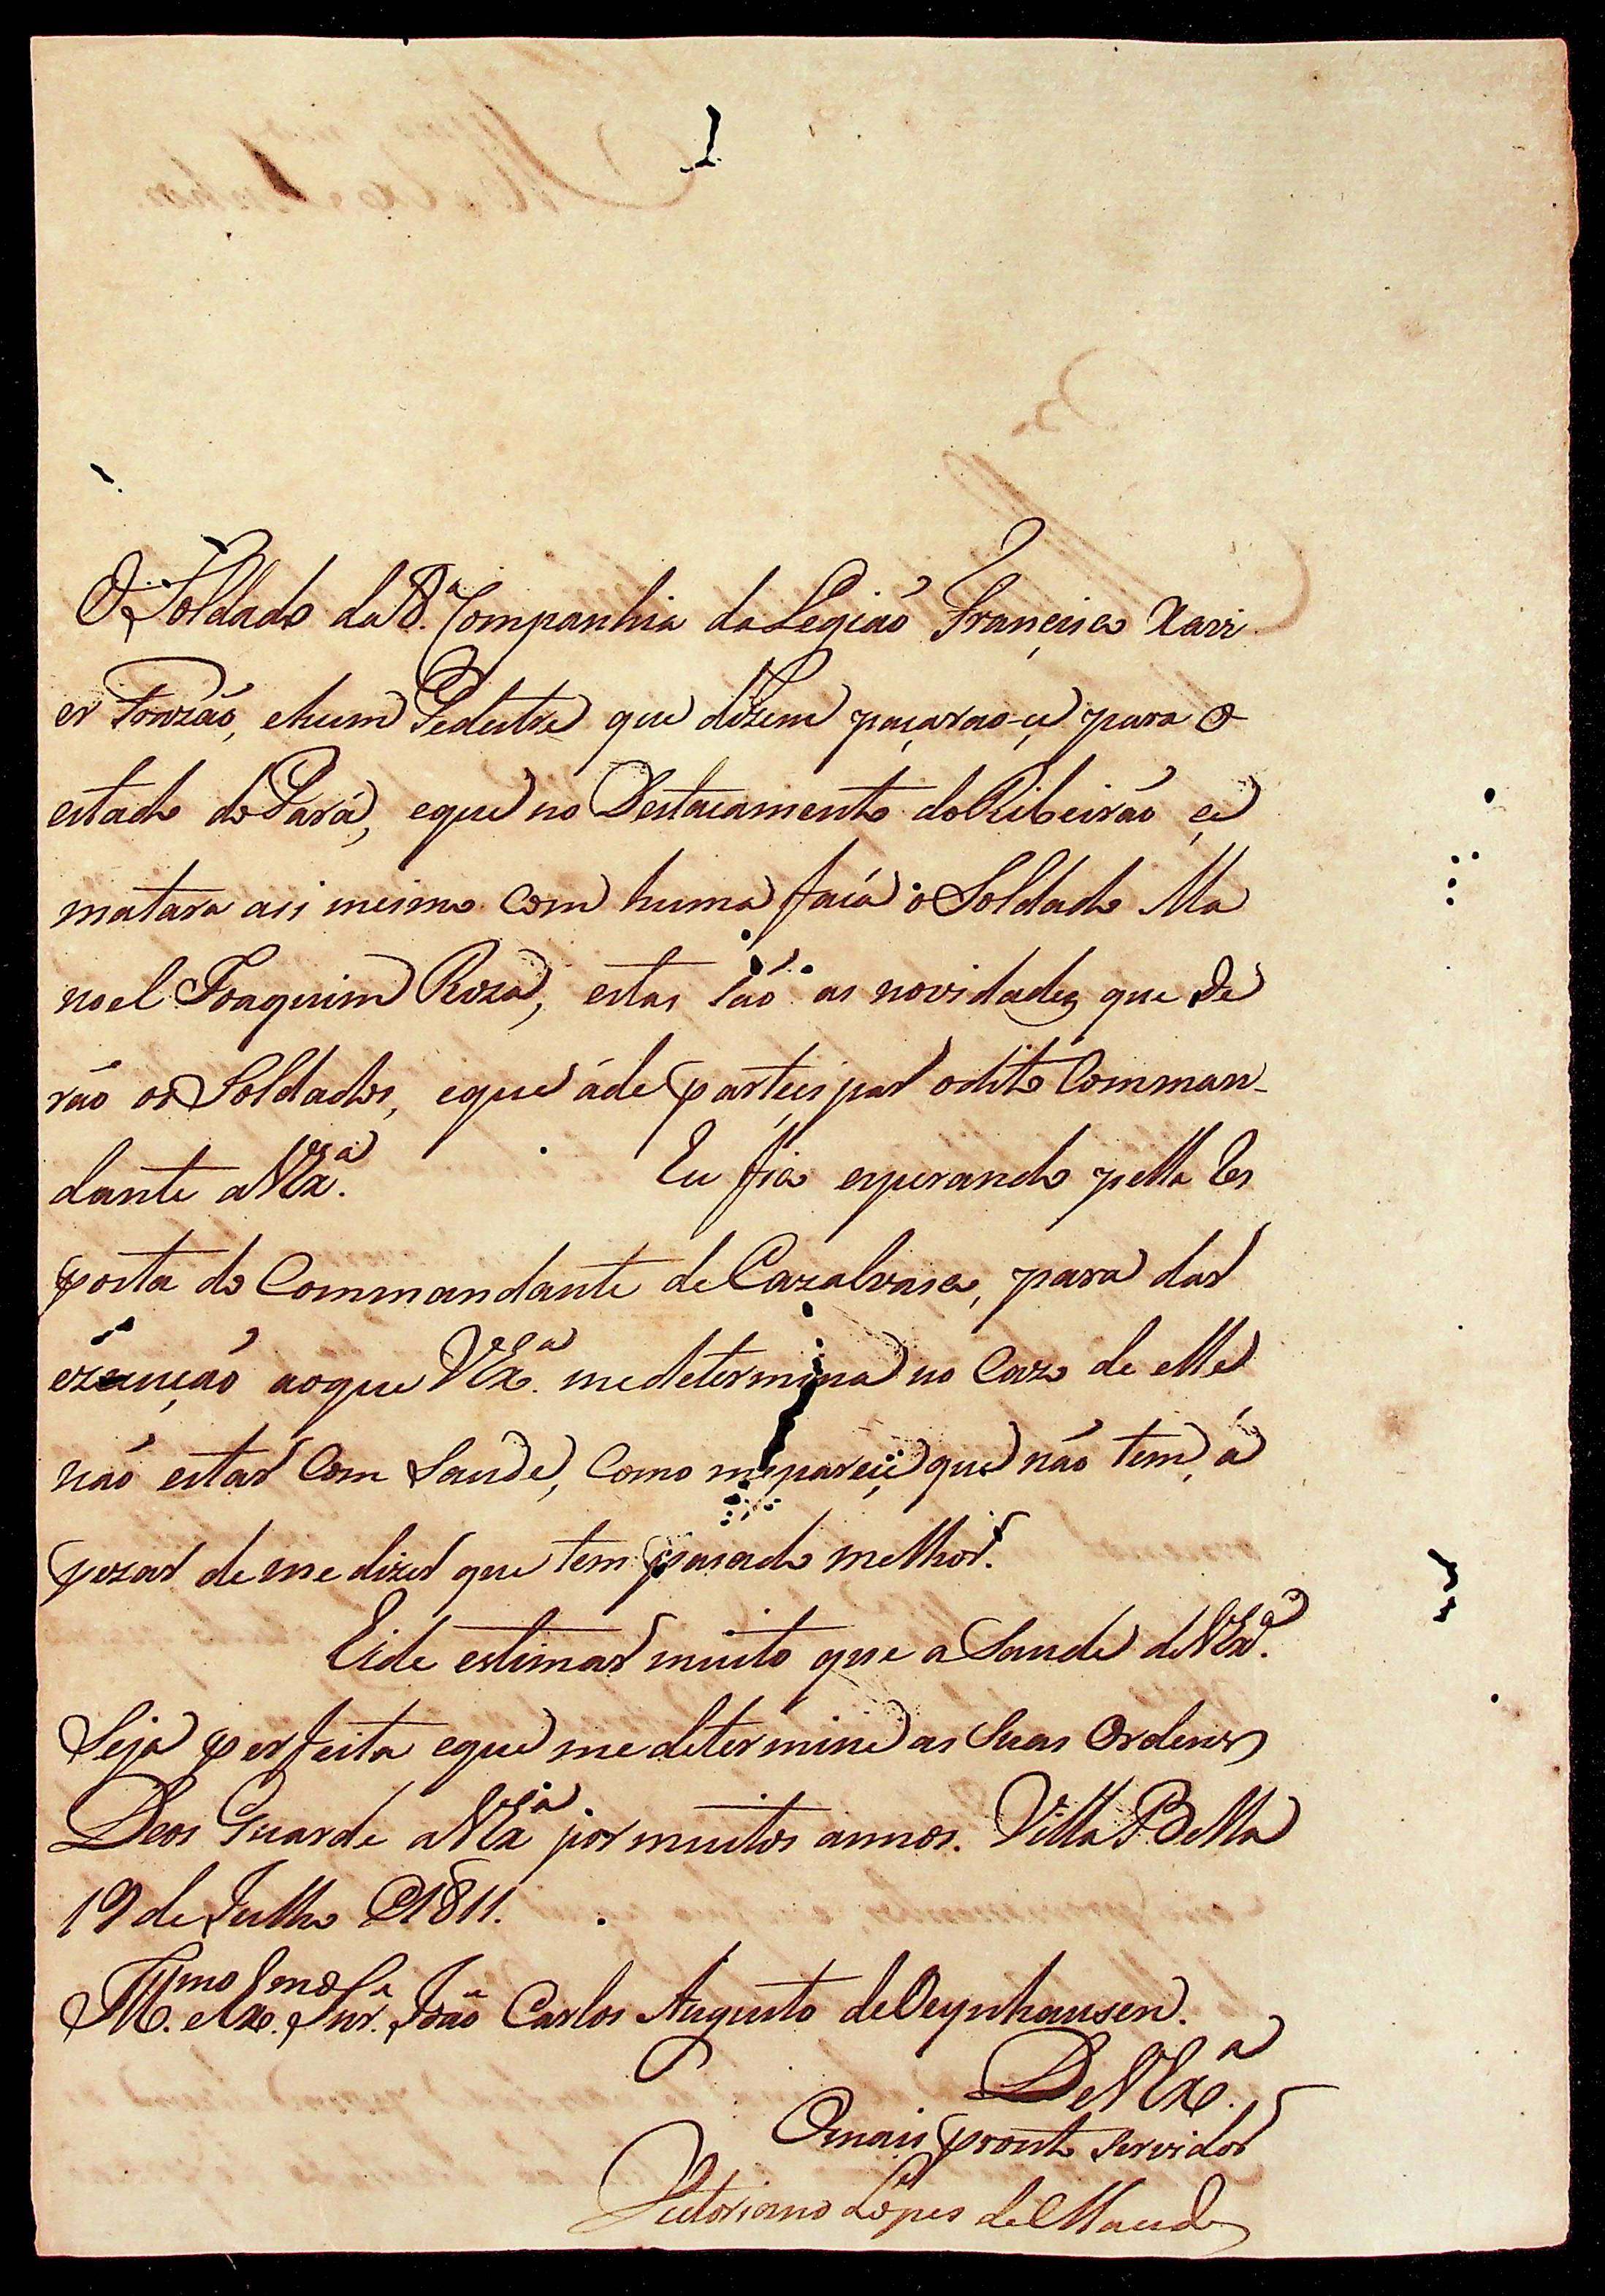 O Soldado da 8.ª Companhia da Legiaõ Françisco Xavi
er Torozão, ehum Pedestre que dizem paçaraõ-çe para o
estado do Pará, eque no Destacamento doRibeirão çe
matara asi mesmo com huma faca o Soldado Ma
noel Joaquim Roza, estas saõ as novidades que de
rão os Soldados, eque áde partecipar odito Comman-
dante aVExª. Eu fico esperando pella Res
posta do Commandante deCazalvasco, para dar
ezecuçaõ aoque VExª. medetermina no Cazo de elle
não estar com Saude, como mepareçe que não tem, á
pezar deme dizer que tem pasado melhor.
Eide estimar muito que a Saude deVExª.
Seja perfeita eque me determine as Suas Ordens
Deos Guarde aVExª por muitos annos. Villa Bella
19 de Julho de 1811.
Illmo. eExmo. Snr. João Carlos Augusto deOeynhausen.
DeVExª.
Omais pronto servidor
Victoriano Lopes deMacedo